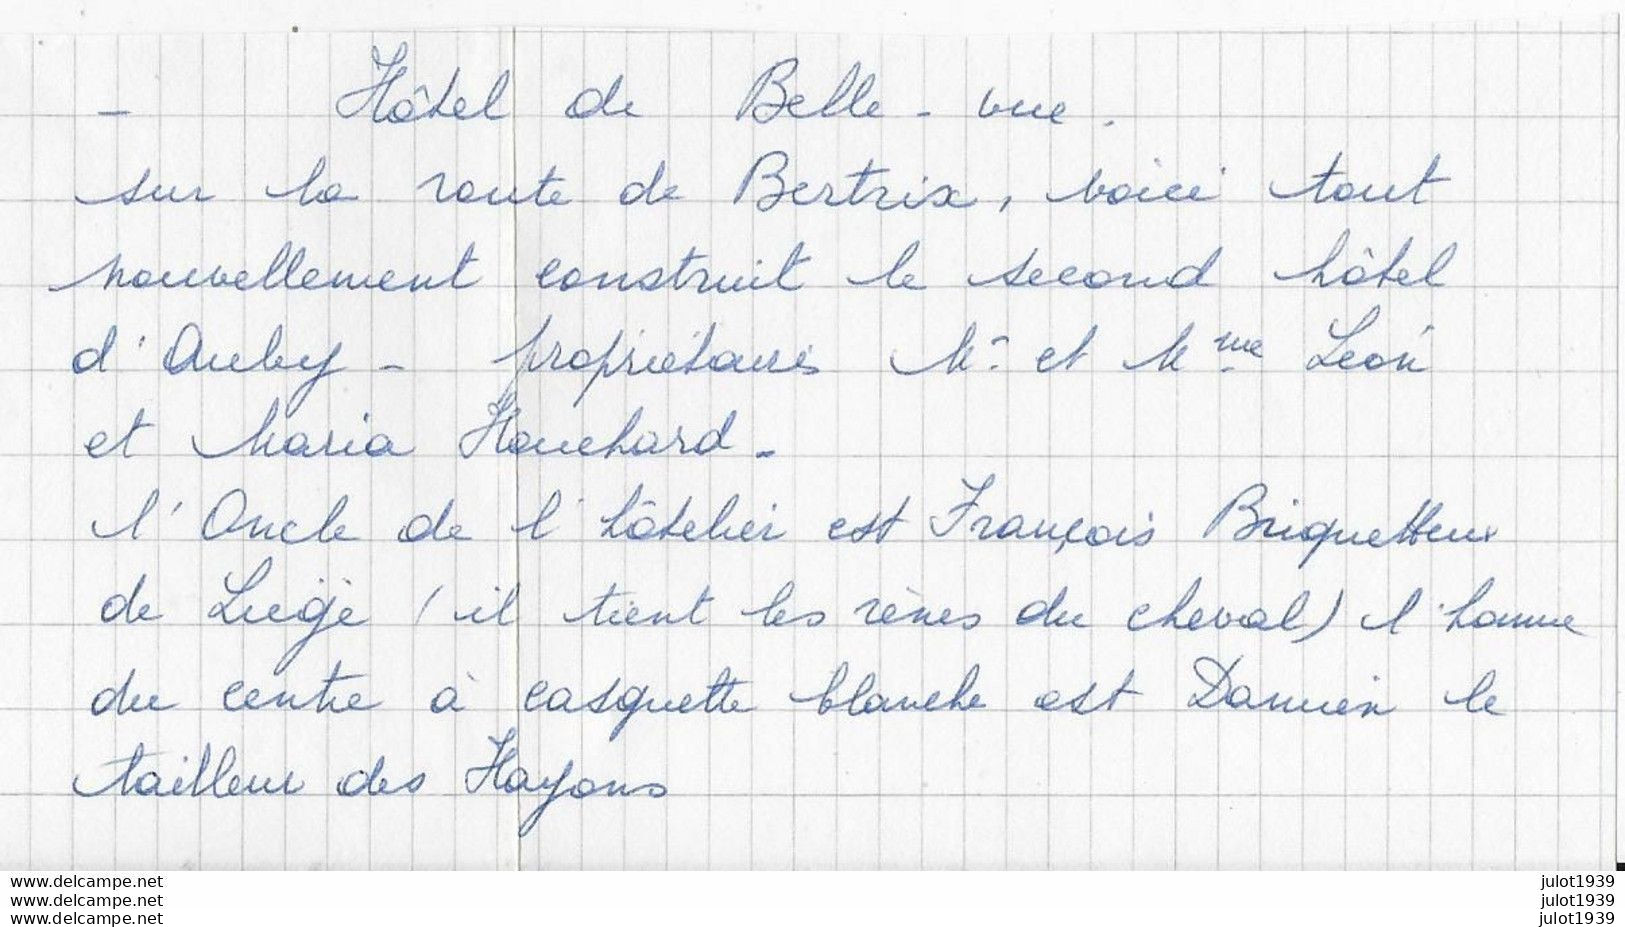 - Hôtel de Belle-vue.
sur la route de Bertrix, voici tout
nouvellement construit le second hôtel
d'Auby - propriétaires Mr et Mme Léon
et Maria Houchard -
l'Oncle de l'hôtelier est François Briquetteux
de Liège (il tient les rènes du cheval) l'homme
du centre à casquette blanche est Damien le
tailleur des Hayons
www.delcampe.net
www.delcampe.net
www.delcampe.net
julot1939
julot1939
julot1939